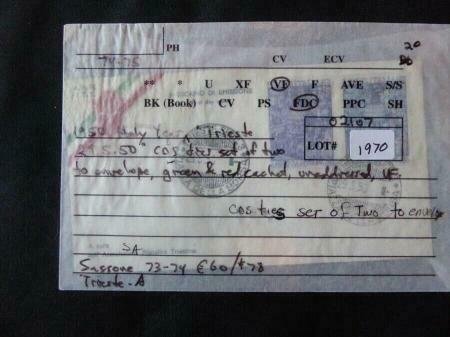 20
PH CV ECV
74-75
** * U XF VF F AVE S/S
BK (Book) CV PS FDC PPC SH
02107
LOT# 1970
1950 Holy Year, "Trieste
29.5.50" CDS ties set of two
to envelope, green & red cachet, unaddressed, VF.
CDS ties set of Two to envelope
SA
Sassone 73-74 €60/$78
Trieste-A